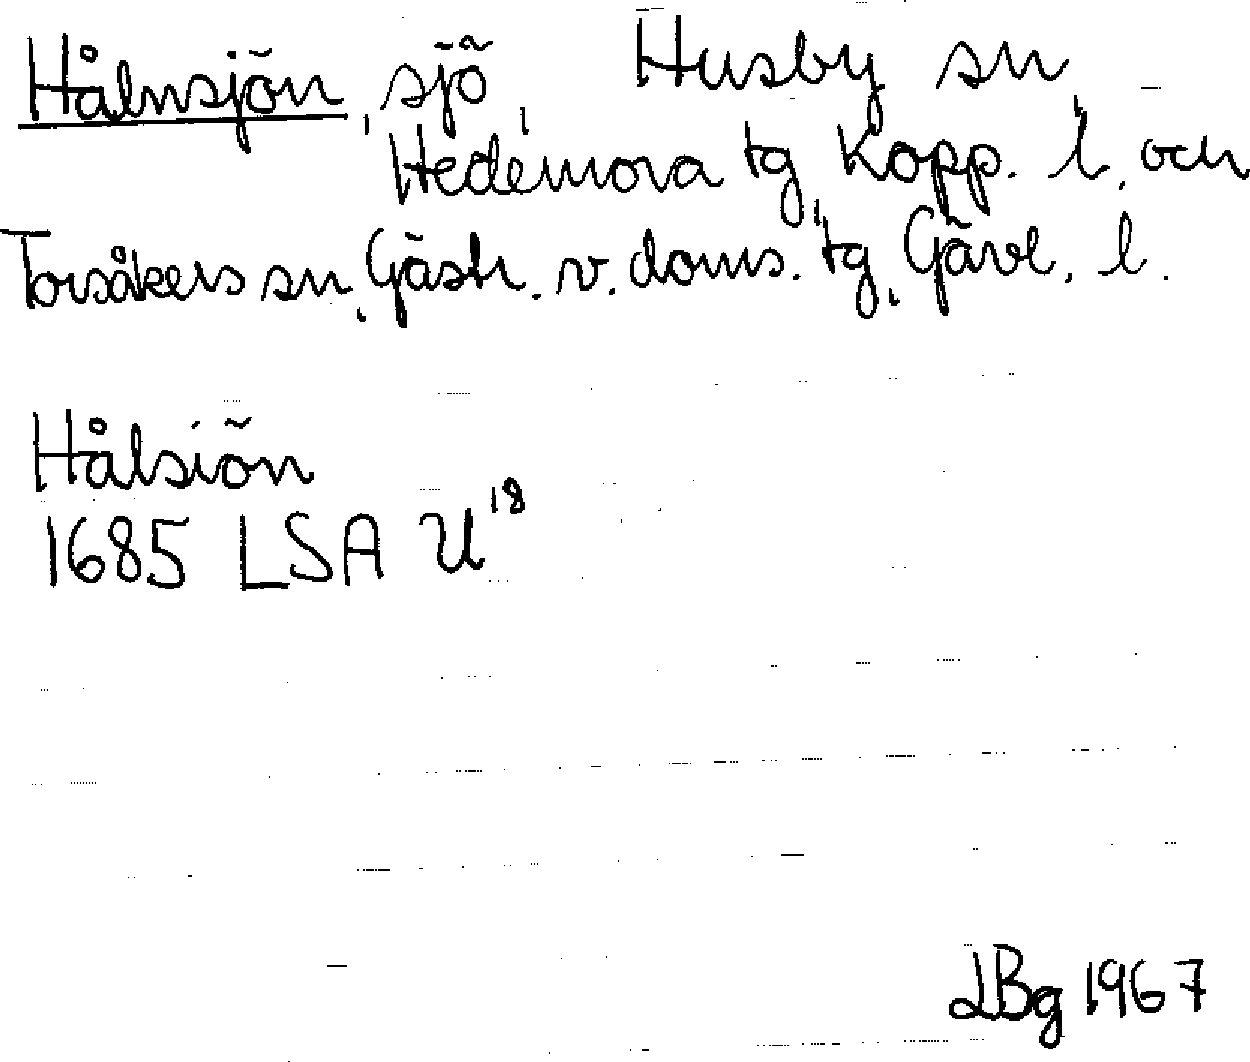 Hålmsjön, sjö, Husby sn,
Hedemora tg, Kopp. l. och
Torsåkers sn, Gästr. v. doms. tg, Gävl. l.
Hålsiön
1685 LSA U18
LBg 1967